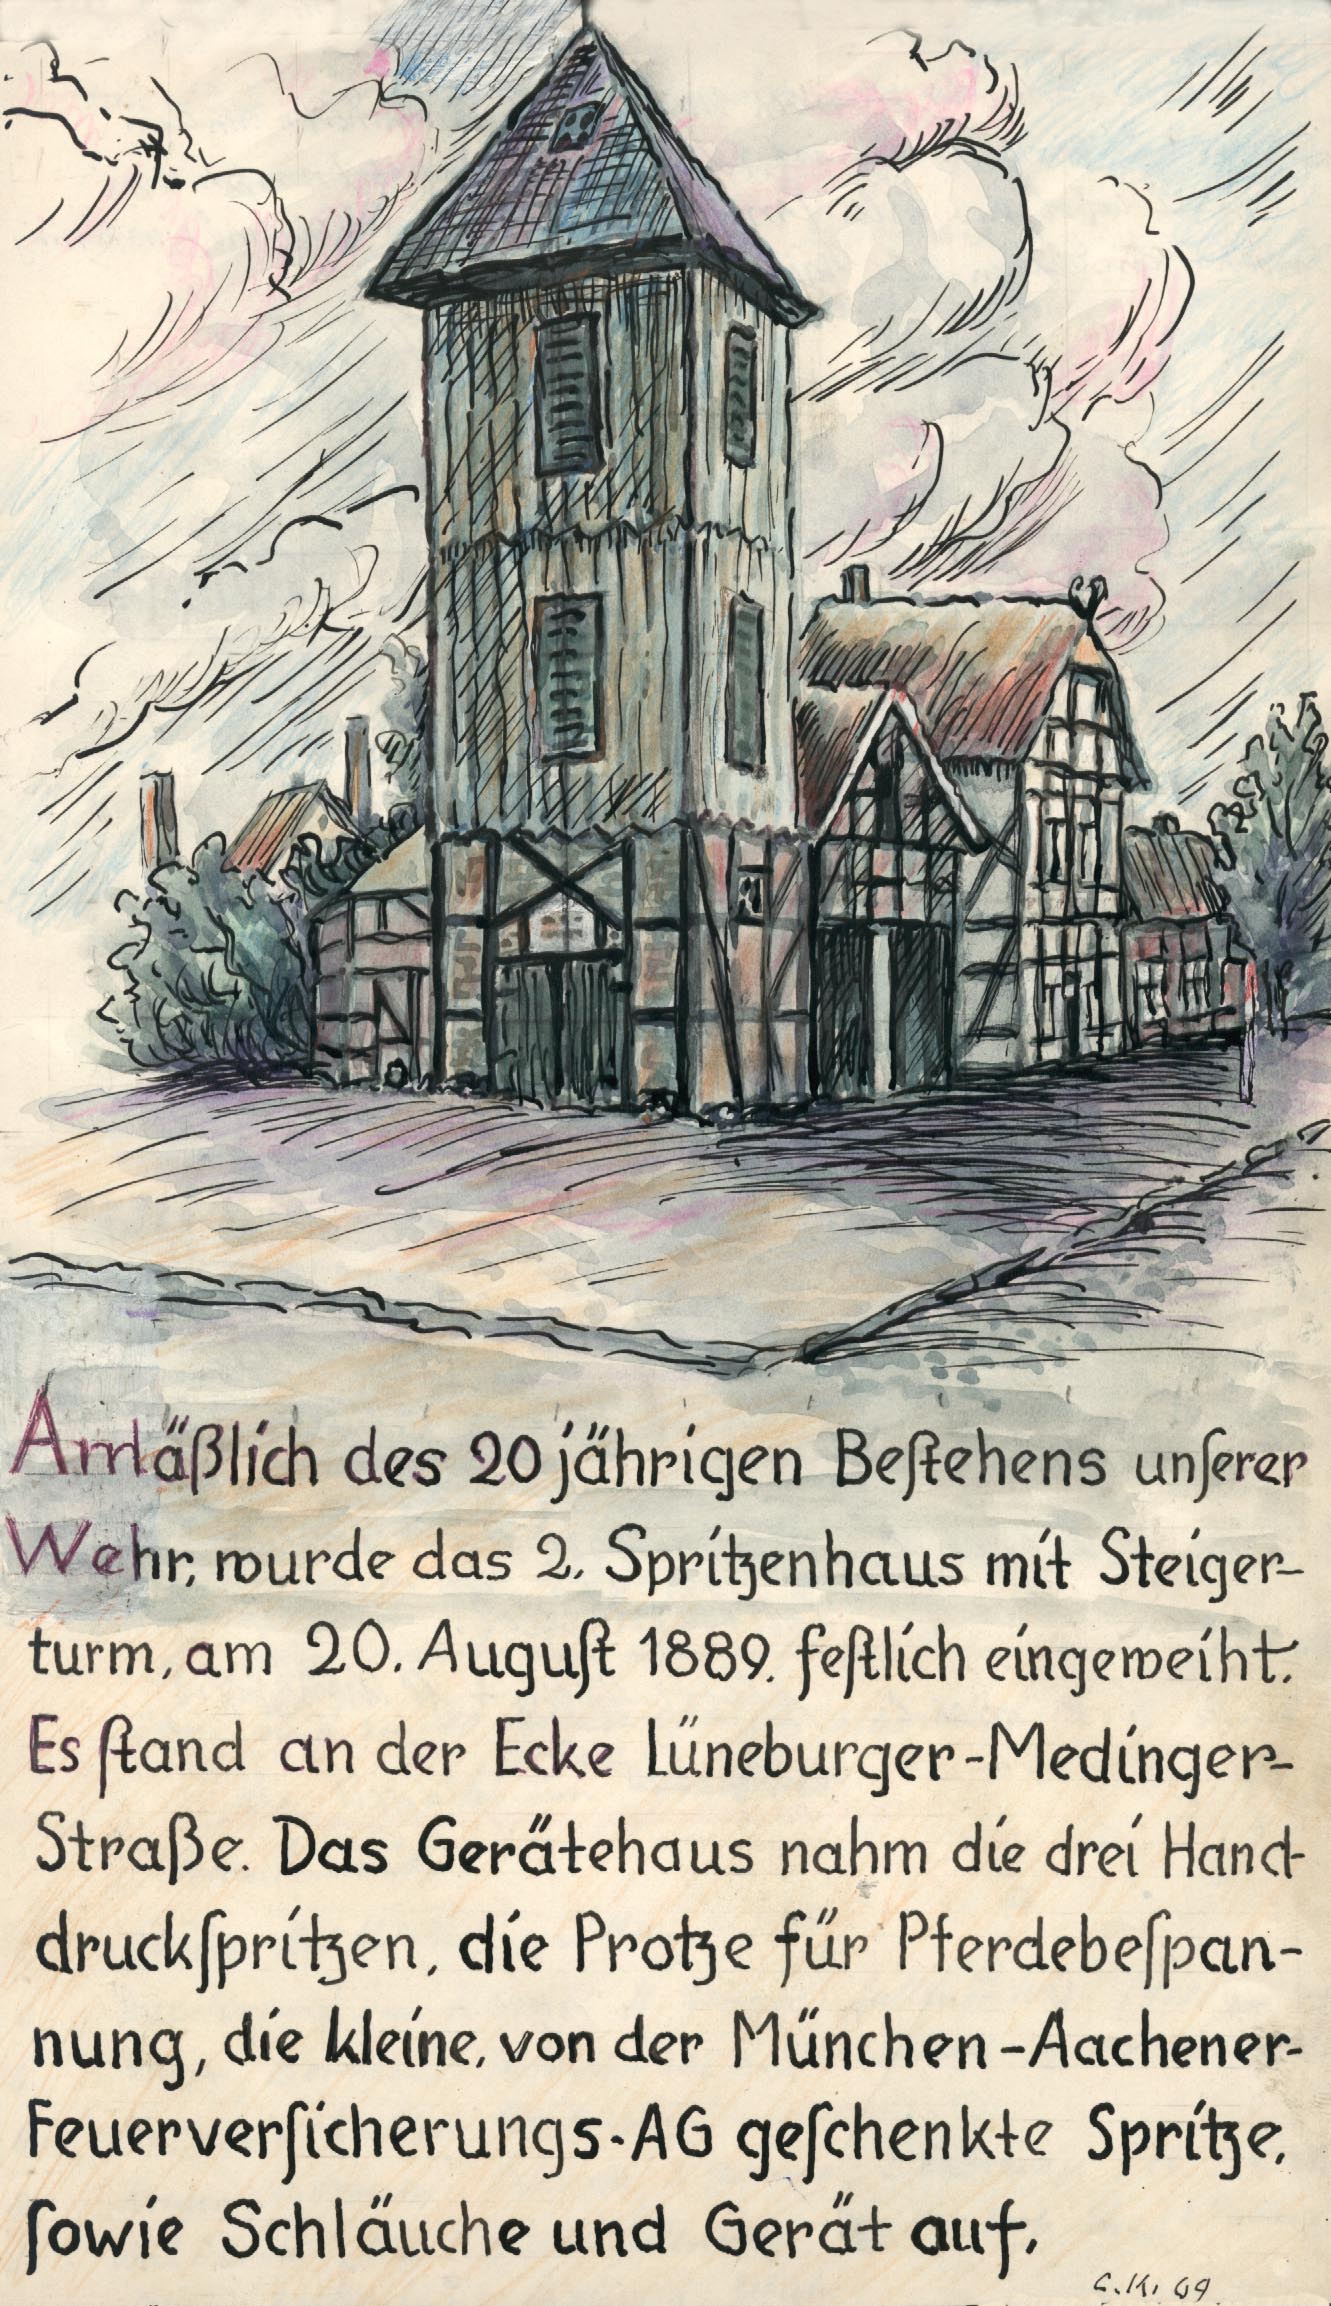 Anläßlich des 20jährigen Beſtehens unſerer
Wehr, wurde das 2. Spritzenhaus mit Steiger-
turm, am 20. Auguſt 1889. feſtlich eingeweiht.
Es ſtand an der Ecke Lüneburger-Medinger-
Straße. Das Gerätehaus nahm die drei Hand-
druckſpritzen, die Protze für Pferdebeſpan-
nung, die kleine, von der München-Aachener-
Feuerverſicherungs-AG geſchenkte Spritze,
ſowie Schläuche und Gerät auf.
C.K. 69